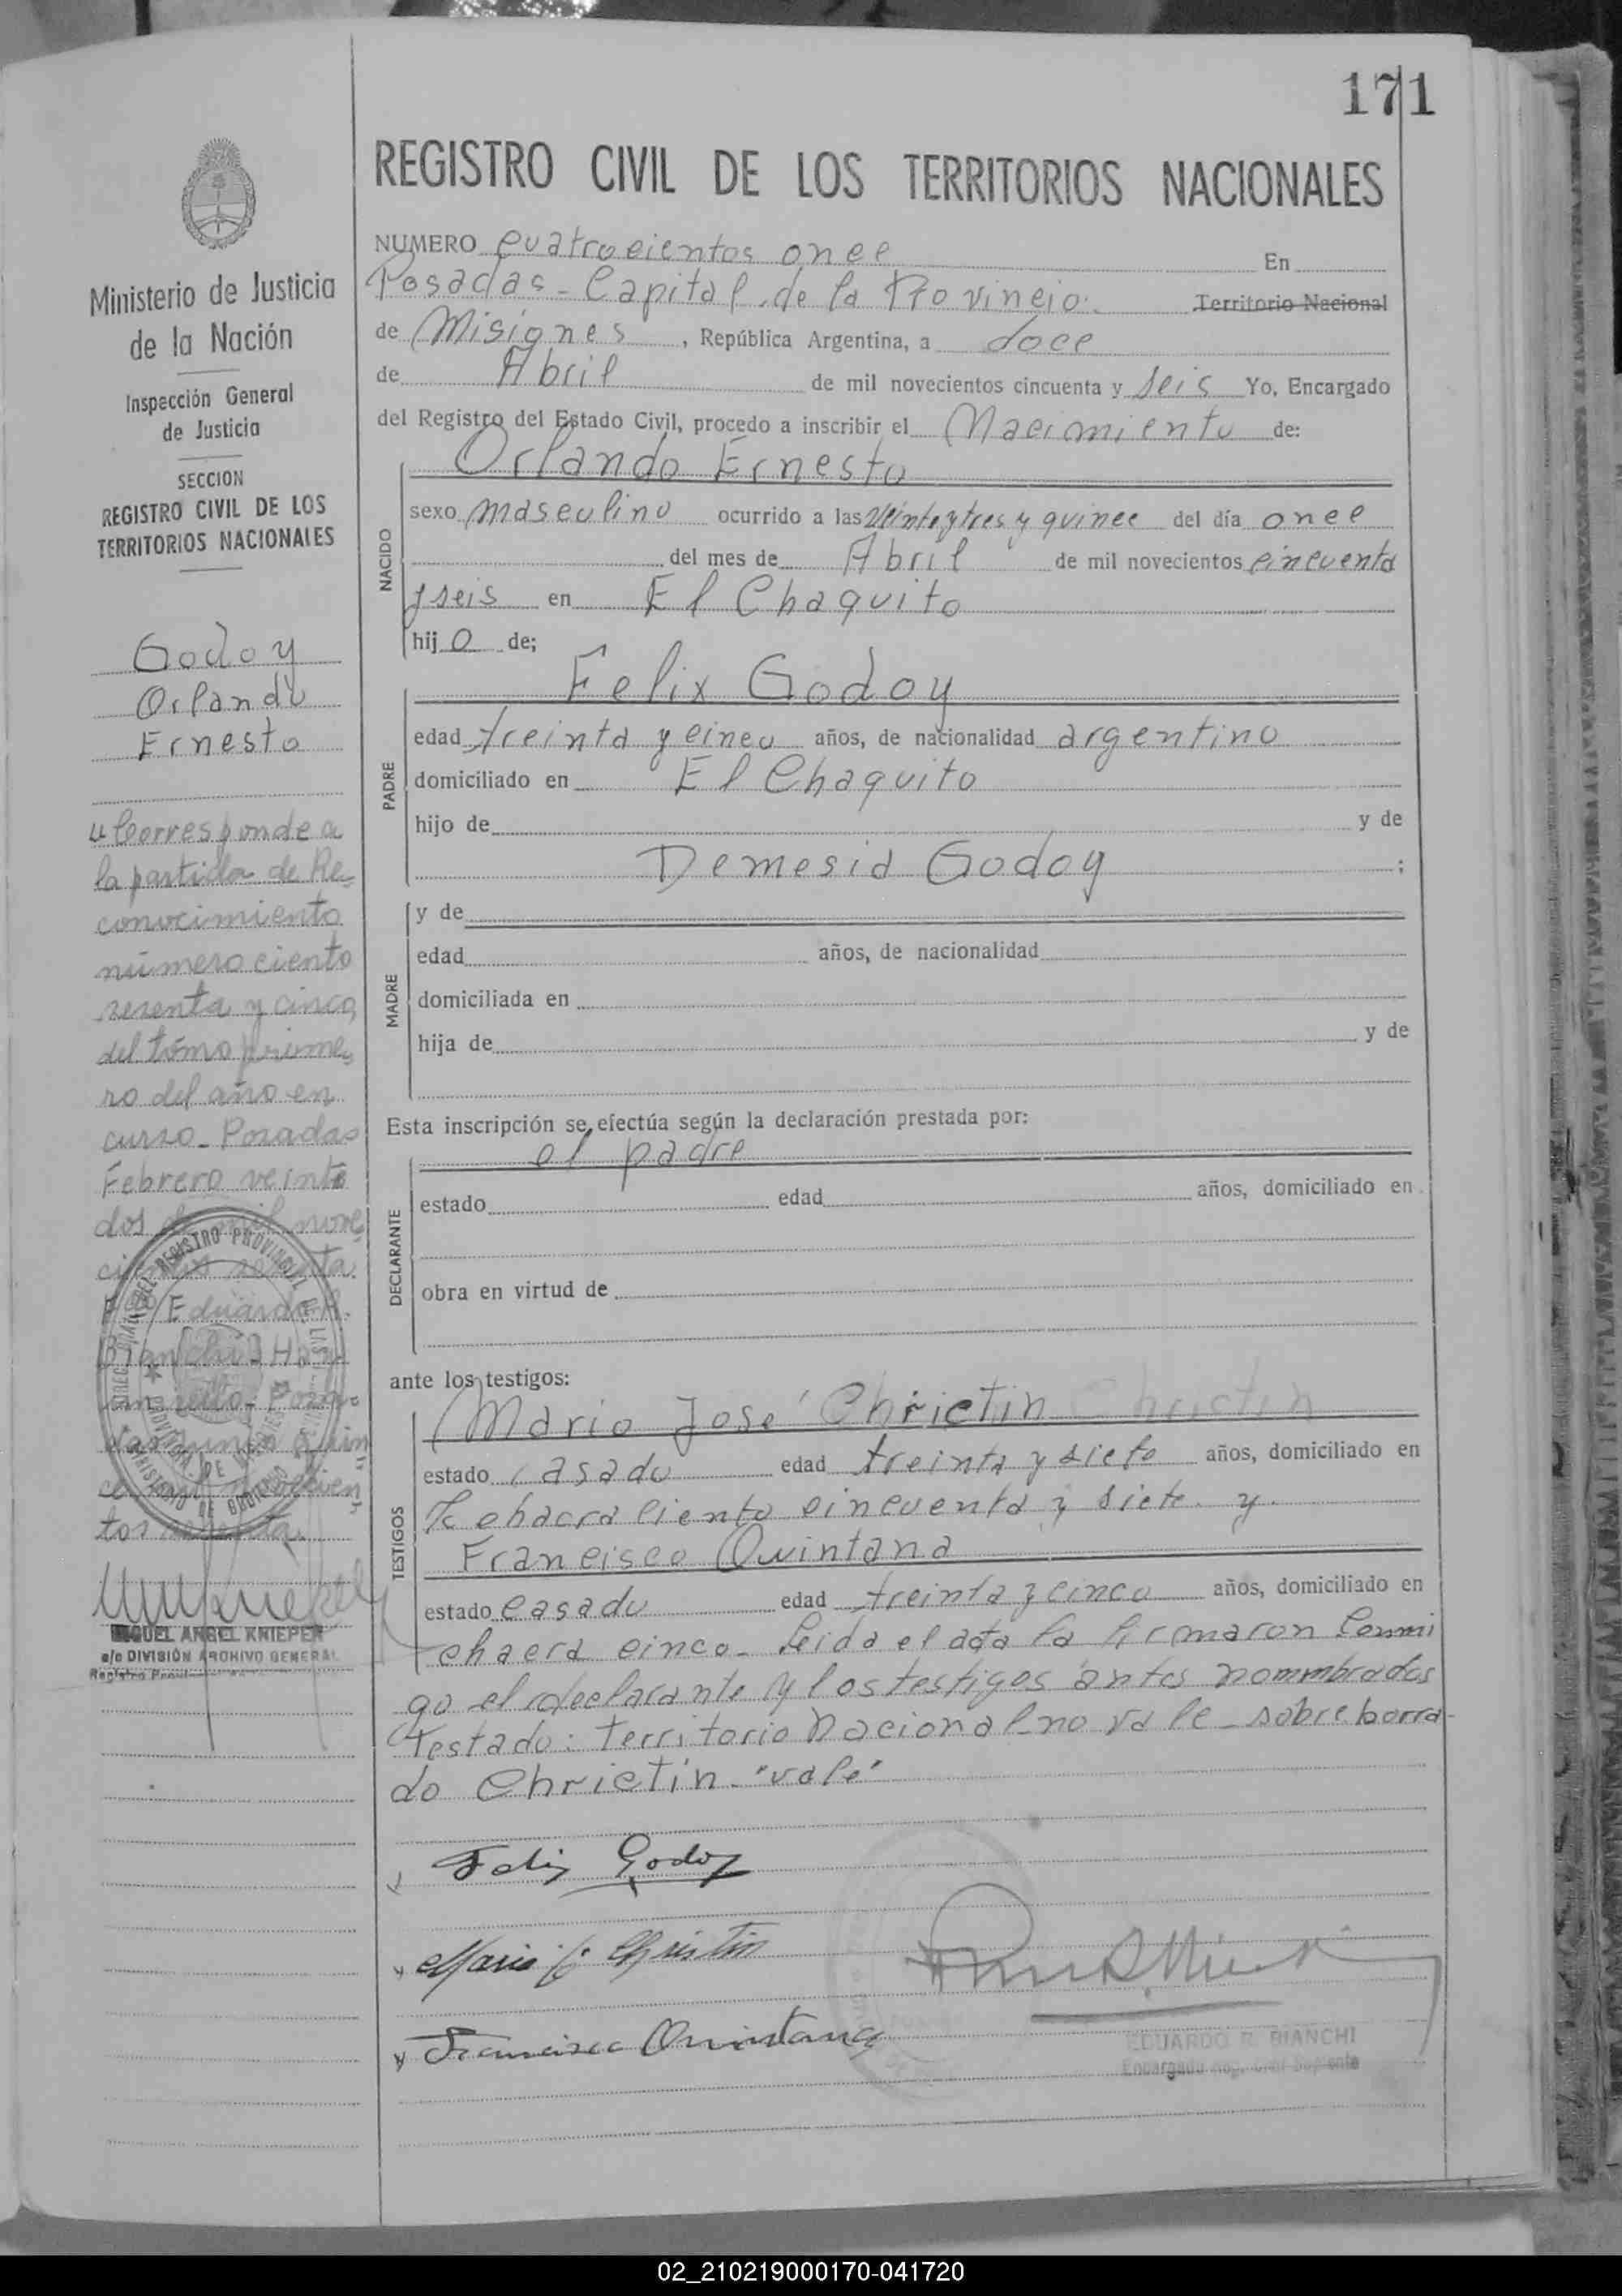 171
REGISTRO CIVIL DE LOS TERRITORIOS NACIONALES
Ministerio de Justicia
de la Nación
Inspección General
de Justicia
SECCION
REGISTRO CIVIL DE LOS
TERRITORIOS NACIONALES
Godoy
Orlando
Ernesto
"Corresponde a
la partida de Re-
conocimiento
número ciento
sesenta y cinco,
del tomo prime-
ro del año en
curso_ Posadas
Febrero veinti
dos de mil nove-
cientos sesenta.
Eduardo R.
Bianchi_ Hay
un sello_ Posa-
das
ce mil novecien-
tos sesenta.
MIGUEL ANGEL KNIEPER
a/c DIVISIÓN ARCHIVO GENERAL
NUMERO cuatrocientos once En
Posadas - Capital de la Provincia. Territorio Nacional
de Misiones, República Argentina, a doce
de Abril de mil novecientos cincuenta y seis Yo, Encargado
del Registro del Estado Civil, procedo a inscribir el Nacimiento de:
NACIDO
Orlando Ernesto
sexo masculino ocurrido a las veinte y tres y quince del día once
del mes de Abril de mil novecientos cincuenta
y seis en El Chaquito
hijo de;
PADRE
Felix Godoy
edad treinta y cinco años, de nacionalidad argentino
domiciliado en El Chaquito
hijo de y de
Demesia Godoy ;
MADRE
y de
edad años, de nacionalidad
domiciliada en
hija de y de
Esta inscripción se efectúa según la declaración prestada por:
DECLARANTE
el padre
estado edad años, domiciliado en
obra en virtud de
ante los testigos:
TESTIGOS
Mario José Chrictin Christin
estado casado edad treinta y siete años, domiciliado en
la chacra ciento cincuenta y siete y
Francisco Quintana
estado casado edad treinta y cinco años, domiciliado en
chacra cinco_ Leida el acta la firmaron Conmi
go el declarante y los testigos antes nommbrados
Testado: Territorio Nacional_no vale_sobreborra-
do Chrictin "vale"
Felix Godoy
Mario J. Christin
Francisco Quintana
EDUARDO R. BIANCHI
Encargado Reg. Civil Suplente
02_210219000170-041720